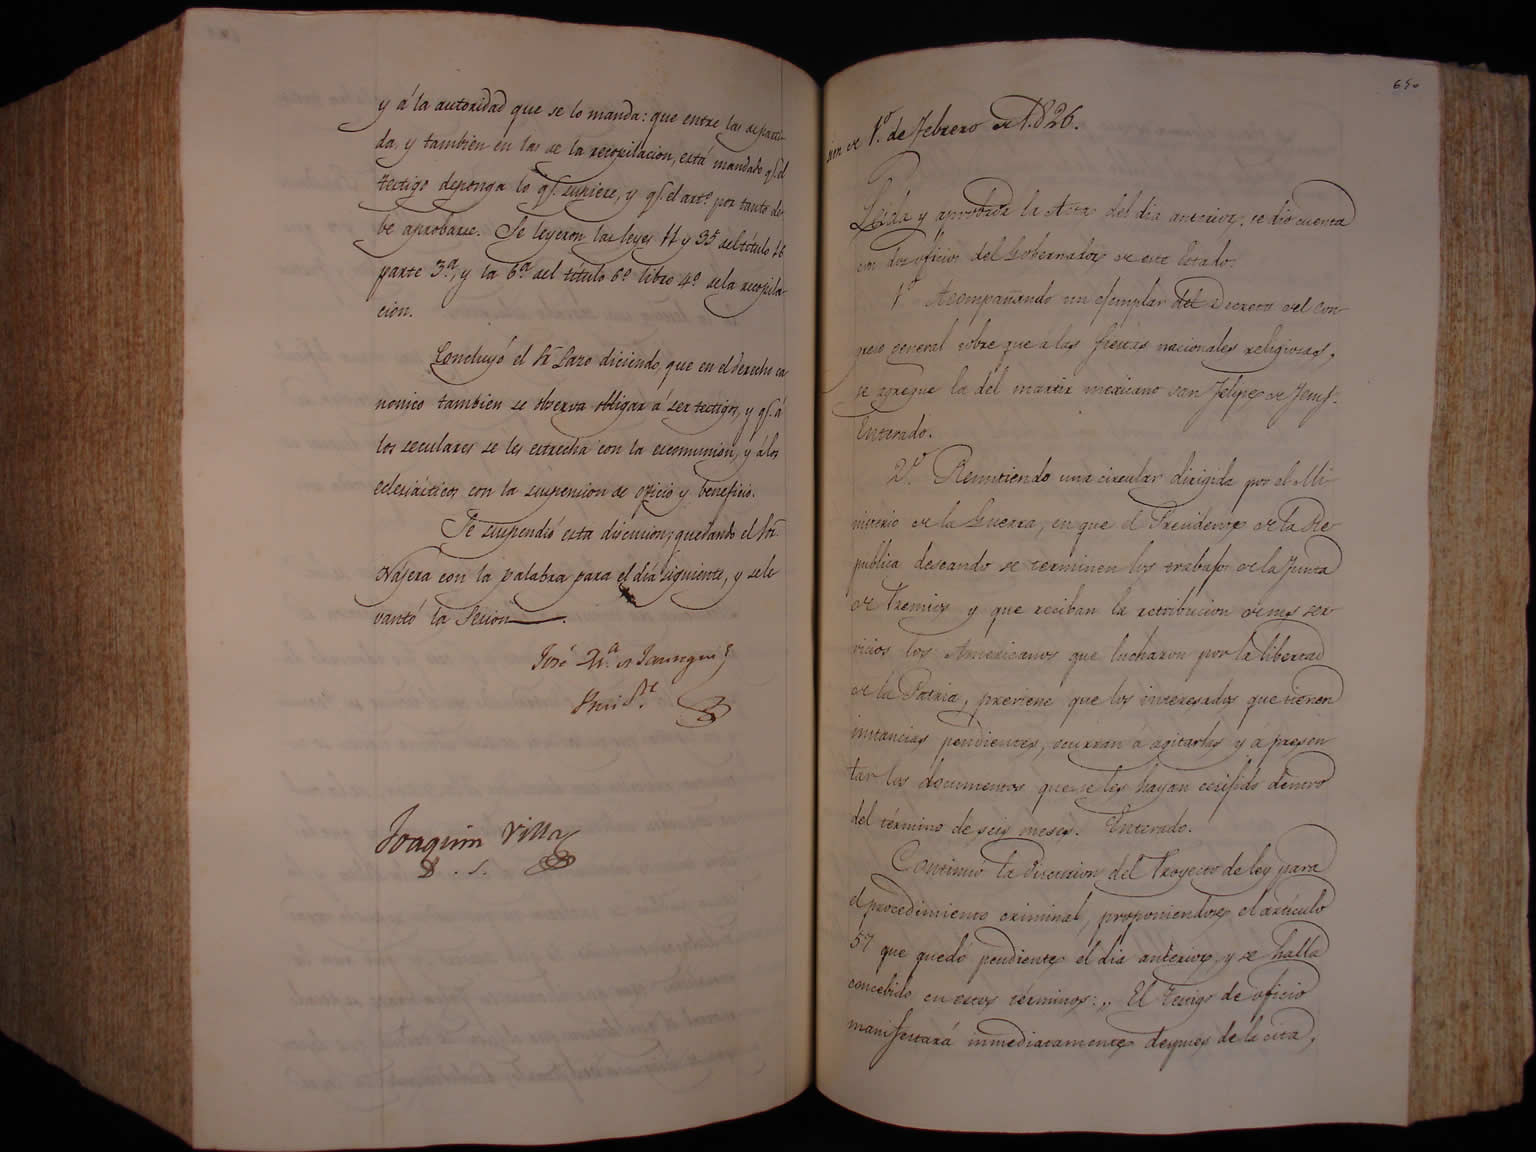 y á la autoridad que se lo manda: que entre las de parti-
da, y tambien en las de la recopilacion, está mandado q.e el
testigo deponga lo q.e supiere, y q.e el art.o por tanto de-
be aprobarse. Se leyeron las leyes 11 y 35 del título 16
parte 3.a, y la 6.a del título 6.o libro 4.o de la recopila-
cion.
Concluyó el Sr. Lazo diciendo, que en el derecho ca-
nonico tambien se observa obligar á ser testigos, y q.e á
los seculares se les estrecha con la escomunion, y á los
eclesiásticos con la suspension de oficio y beneficio.
Se suspendió esta discucion, quedando el Sr.
Nájera con la palabra para el dia siguiente, y se le-
vantó la Sesion.
José M.a de Jauregui
Presi.te
Joaquin Villa
D. S.
650
sion de 1.o de Febrero de 1.826.
Leida y aprobada la Acta del dia anterior, se dió cuenta
con dos oficios del Gobernador de este Estado.
1.o Acompañando un ejemplar del Decreto del Con-
greso general sobre que á las fiestas nacionales religiosas,
se agregue la del martir mexicano san Felipe de Jesus.
Enterado.
2.o Remitiendo una circular dirigida por el Mi-
nisterio de la Guerra, en que el Presidente de la Re-
publica deseando se terminen los trabajos de la Junta
de Premios y que reciban la retribucion de sus ser-
vicios los Americanos que lucharon por la libertad
de la Patria, previene que los interesados que tienen
instancias pendientes, ocurran á agitarlas y á presen-
tar los documentos que se les hayan ecsijido dentro
del término de seis meses. Enterado.
Continuó la discusion del Proyecto de ley para
el procedimiento criminal, proponiendose el artículo
57 que quedó pendiente el dia anterior, y se halla
concebido en estos términos: „ El testigo de oficio
manifestará inmediatamente despues de la cita,